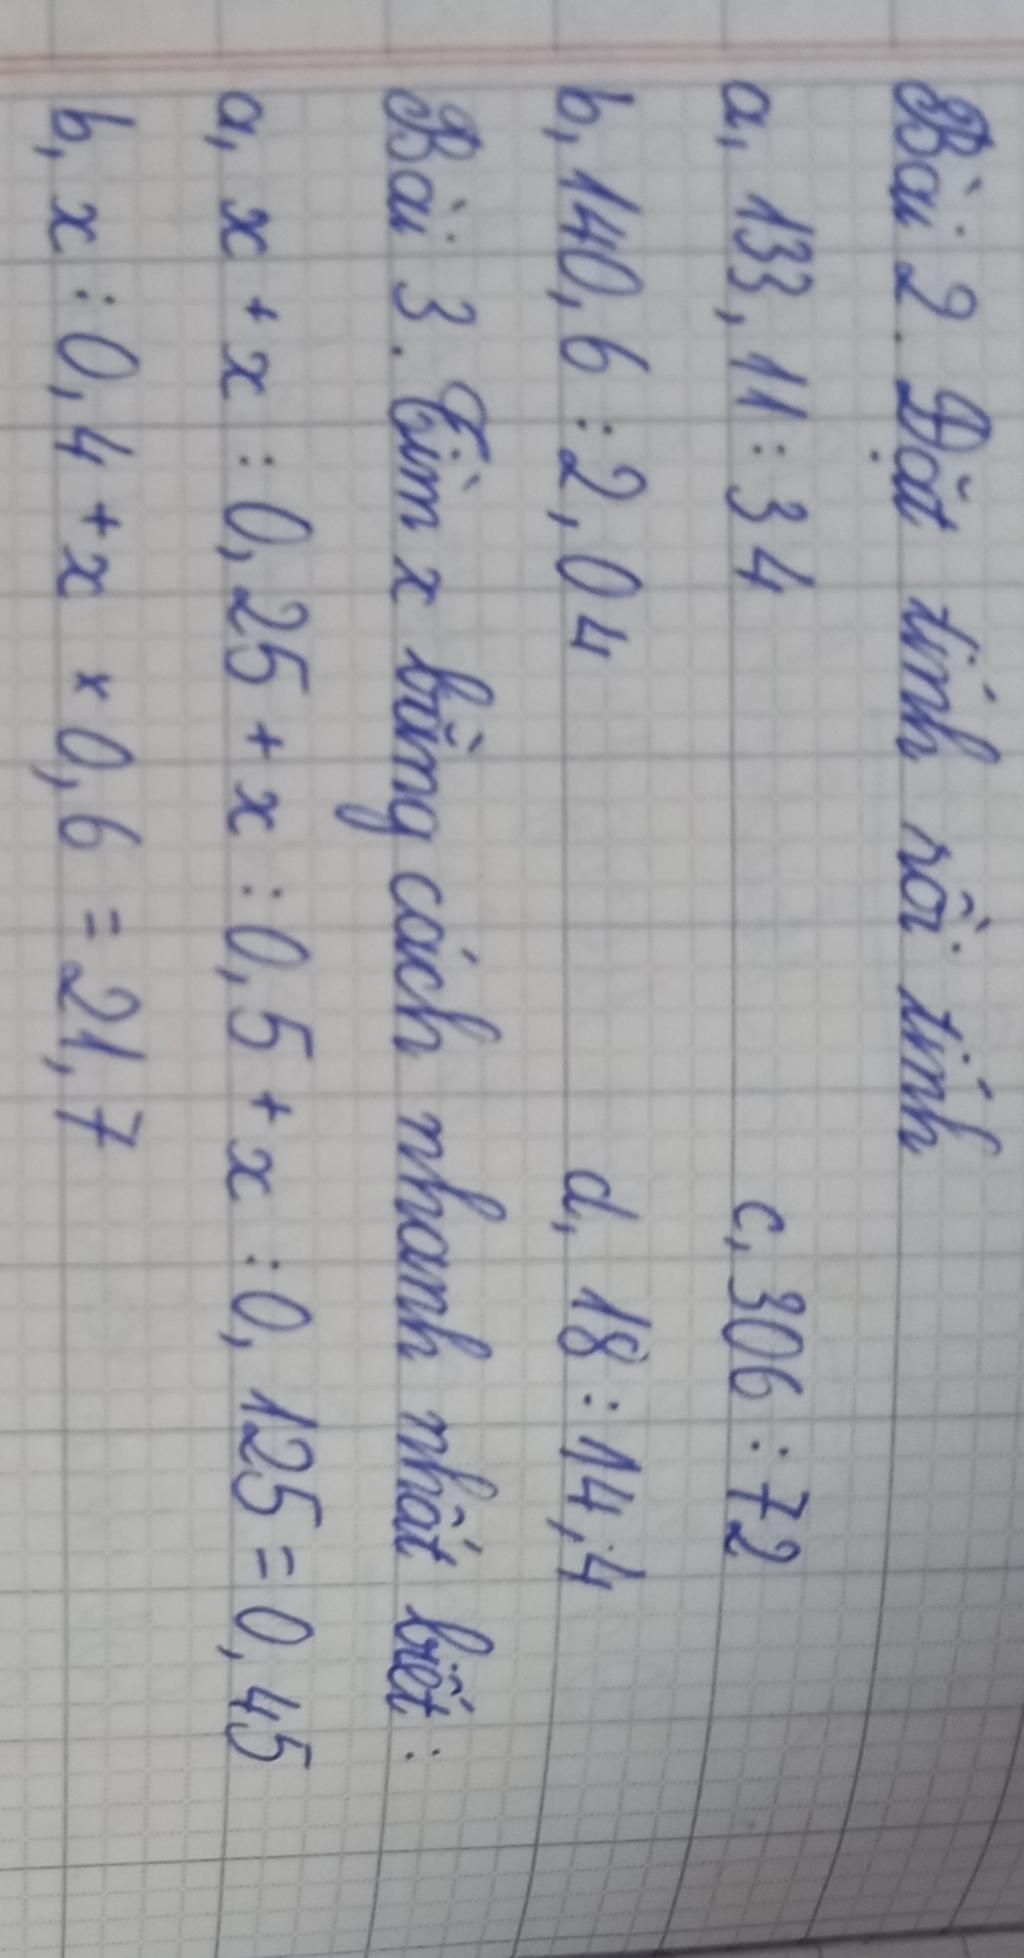 Bài 2. Đặt tính rồi tính
a, 133,11 : 34 c, 306 : 72
b, 140,6 : 2,04 d, 18 : 14,4
Bài 3. Tìm x bằng cách nhanh nhất biết :
a, x + x : 0,25 + x : 0,5 + x : 0,125 = 0,45
b, x : 0,4 + x × 0,6 = 21,7